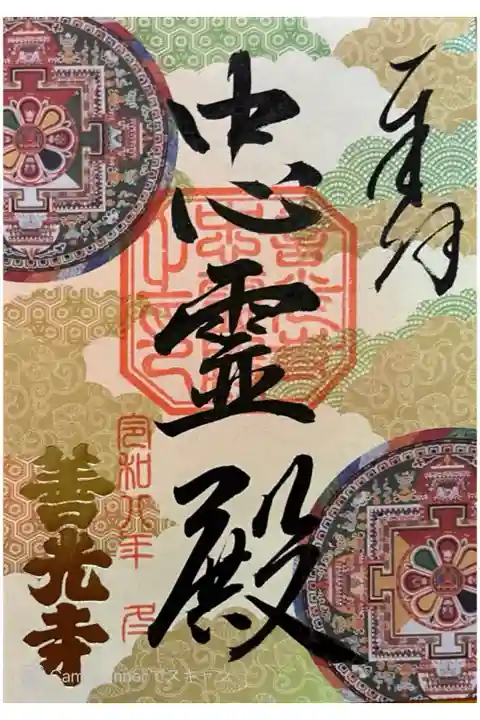 奉拝
忠霊殿
令和六年
善光寺
CamScannerでスキャン